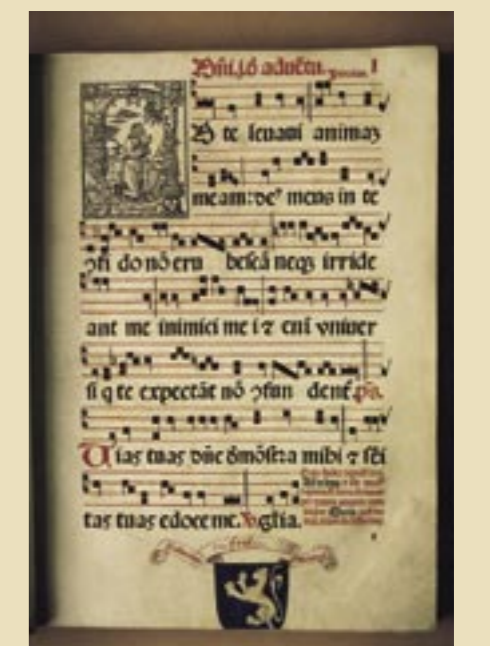 Dñi.j.ỏ aduẽtu.
D te leuaui animaꝫ
meam: deꝰ meus in te
ꝯfi do nõ eru bescã neqꝫ irride
ant me inimici me i ⁊ enĩ vniuer
si q te expectãt nõ ꝯfun denť. p̃s.
Uias tuas dñe dẽmõstra mihi ⁊ sẽi
tas tuas edoce me. V. glia.